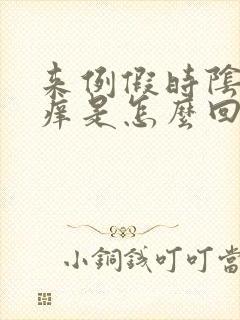 来例假時陰
痒是怎麼回
小銅錢叮叮當